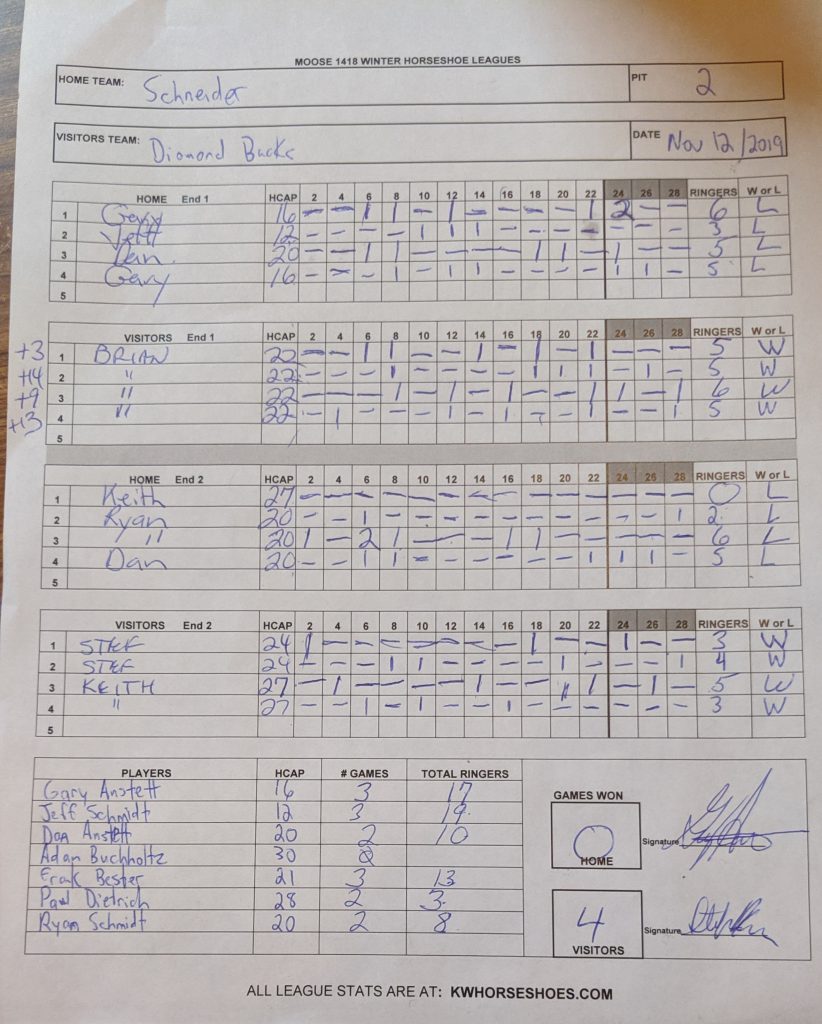 MOOSE 1418 WINTER HORSESHOE LEAGUES
HOME TEAM: Schneider PIT 2
VISITORS TEAM: Diamond Backs DATE Nov 12/2019
HOME End 1 HCAP 2 4 6 8 10 12 14 16 18 20 22 24 26 28 RINGERS W or L
1 Gary 16 – – 1 1 – 1 – – – – 1 2 – – 6 L
2 Jeff 12 3 L
3 Dan 20 – – 1 1 – – – – 1 1 – 1 – – 5 L
4 Gary 16 – – – 1 – 1 1 – – – – 1 1 – 5 L
5
VISITORS End 1 HCAP 2 4 6 8 10 12 14 16 18 20 22 24 26 28 RINGERS W or L
+3 1 BRIAN 22 5 W
+14 2 " 22 5 W
+9 3 " 22 6 W
+13 4 " 22 5 W
5
HOME End 2 HCAP 2 4 6 8 10 12 14 16 18 20 22 24 26 28 RINGERS W or L
1 Keith 27 – – – – – – – – – – – – – – 0 L
2 Ryan 20 – – 1 – – – – – – – – – – 1 2 L
3 " 20 1 – 2 1 – – – 1 1 – – – – – 6 L
4 Dan 20 – – 1 1 – – – – – – 1 1 1 – 5 L
5
VISITORS End 2 HCAP 2 4 6 8 10 12 14 16 18 20 22 24 26 28 RINGERS W or L
1 STEF 24 1 – – – – – – – 1 – – 1 – – 3 W
2 STEF 24 – – – 1 1 – – – – 1 – – – 1 4 W
3 KEITH 27 5 W
4 " 27 – – 1 – 1 – – 1 – – – – – – 3 W
5
PLAYERS HCAP # GAMES TOTAL RINGERS
Gary Anstett 16 3 17
Jeff Schmidt 12 3 19
Dan Anstett 20 2 10
Adam Buchholtz 30
Frank Bester 21 3 13
Paul Dietrich 28 2 3
Ryan Schmidt 20 2 8
GAMES WON
0 HOME Signature
4 VISITORS Signature
ALL LEAGUE STATS ARE AT: KWHORSESHOES.COM